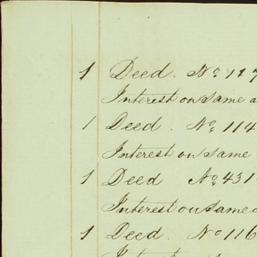 1 Deed. No 117
Interest on same a
1 Deed. No. 114
Interest on same
1 Deed No 431
Interest on same
1 Deed. No 116